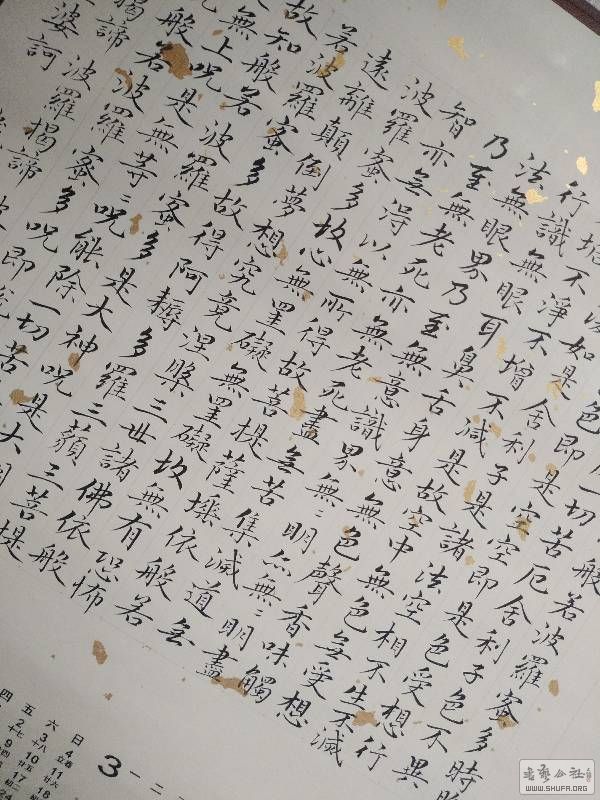 般若波羅蜜多時照
一切苦厄舍利子色不異
色即是空空即是色受想行
如是舍利子是諸法空相不生不滅
垢不淨不增不減是故空中無色無受想
行識無眼耳鼻舌身意無色聲香味觸
法無眼界乃至無意識界無〻明亦無〻明盡
乃至無老死亦無老死盡無苦集滅道無
智亦無得以無所得故菩提薩埵依般若
波羅蜜多故心無罣礙無罣礙故無有恐怖
遠離顛倒夢想究竟涅槃三世諸佛依般
若波羅蜜多故得阿耨多羅三藐三菩提
故知般若波羅蜜多是大神呪是大明
無上呪是無等〻呪能除一切苦
般若波羅蜜多呪即
揭諦波羅揭諦
婆訶
四 五 六 日
2 3 4
9 10 11
17 18
24
3
WWW.SHUFA.ORG